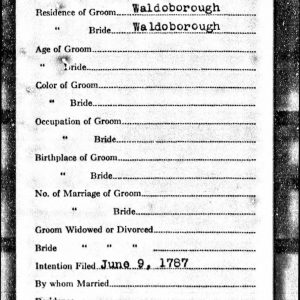 Residence of Groom Waldoborough
" Bride Waldoborough
Age of Groom
" Bride
Color of Groom
" Bride
Occupation of Groom
" Bride
Birthplace of Groom
" Bride
No. of Marriage of Groom
" Bride
Groom Widowed or Divorced
Bride " " "
Intention Filed June 9, 1787
By whom Married